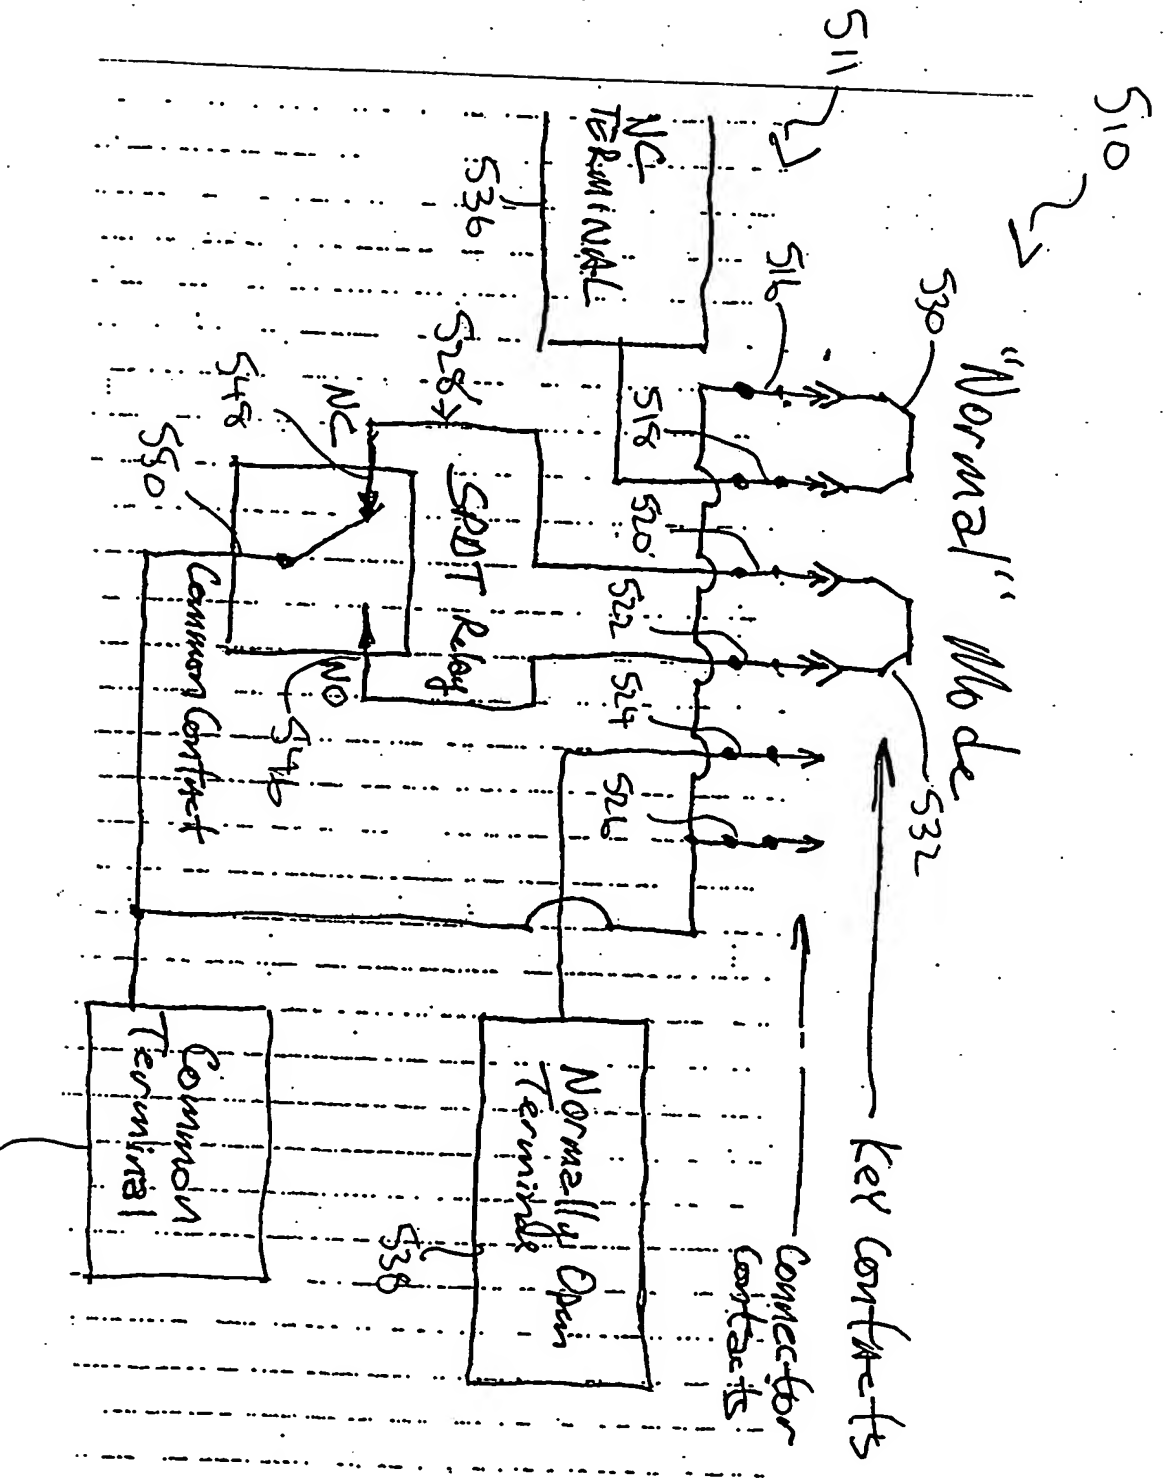 510
511
"Normal" Mode
530
532
516
518
520
522
524
526
NC
TERMINAL
536
528
548
550
NC
SPDT Relay
NO
546
Common Contact
Key Contacts
Connector
Contacts
Normally Open
538
Common
Terminal